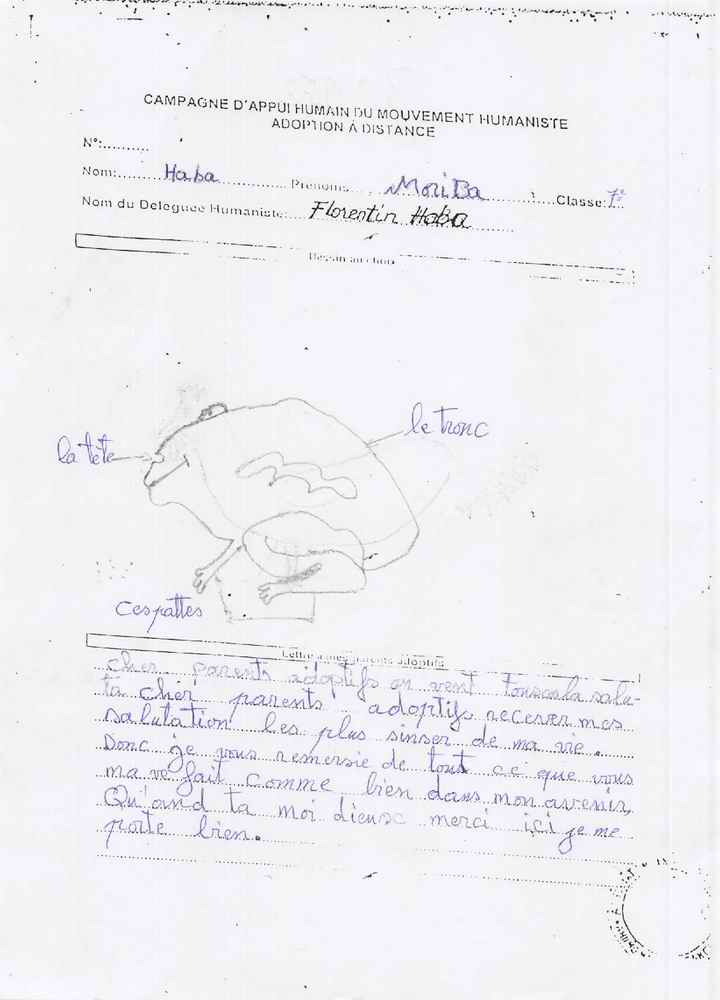 CAMPAGNE D'APPUI HUMAIN DU MOUVEMENT HUMANISTE
ADOPTION À DISTANCE
N°:..........
Nom: Haba Prenoms MoriBa Classe: 7e
Nom du Deleguée Humaniste: Florentin Haba
Dessin au choix
le tronc
la tête
Ces pattes
Lettre à mes parents adoptifs
cher parents adoptifs on vent salu-
ta cher parents adoptifs recever mes
salutation les plus sinser de ma vie.
Donc je vous remersie de tout ce que vous
ma vé fait comme bien dans mon avenir,
Qu'and ta moi dieusc merci ici je me
porte bien.